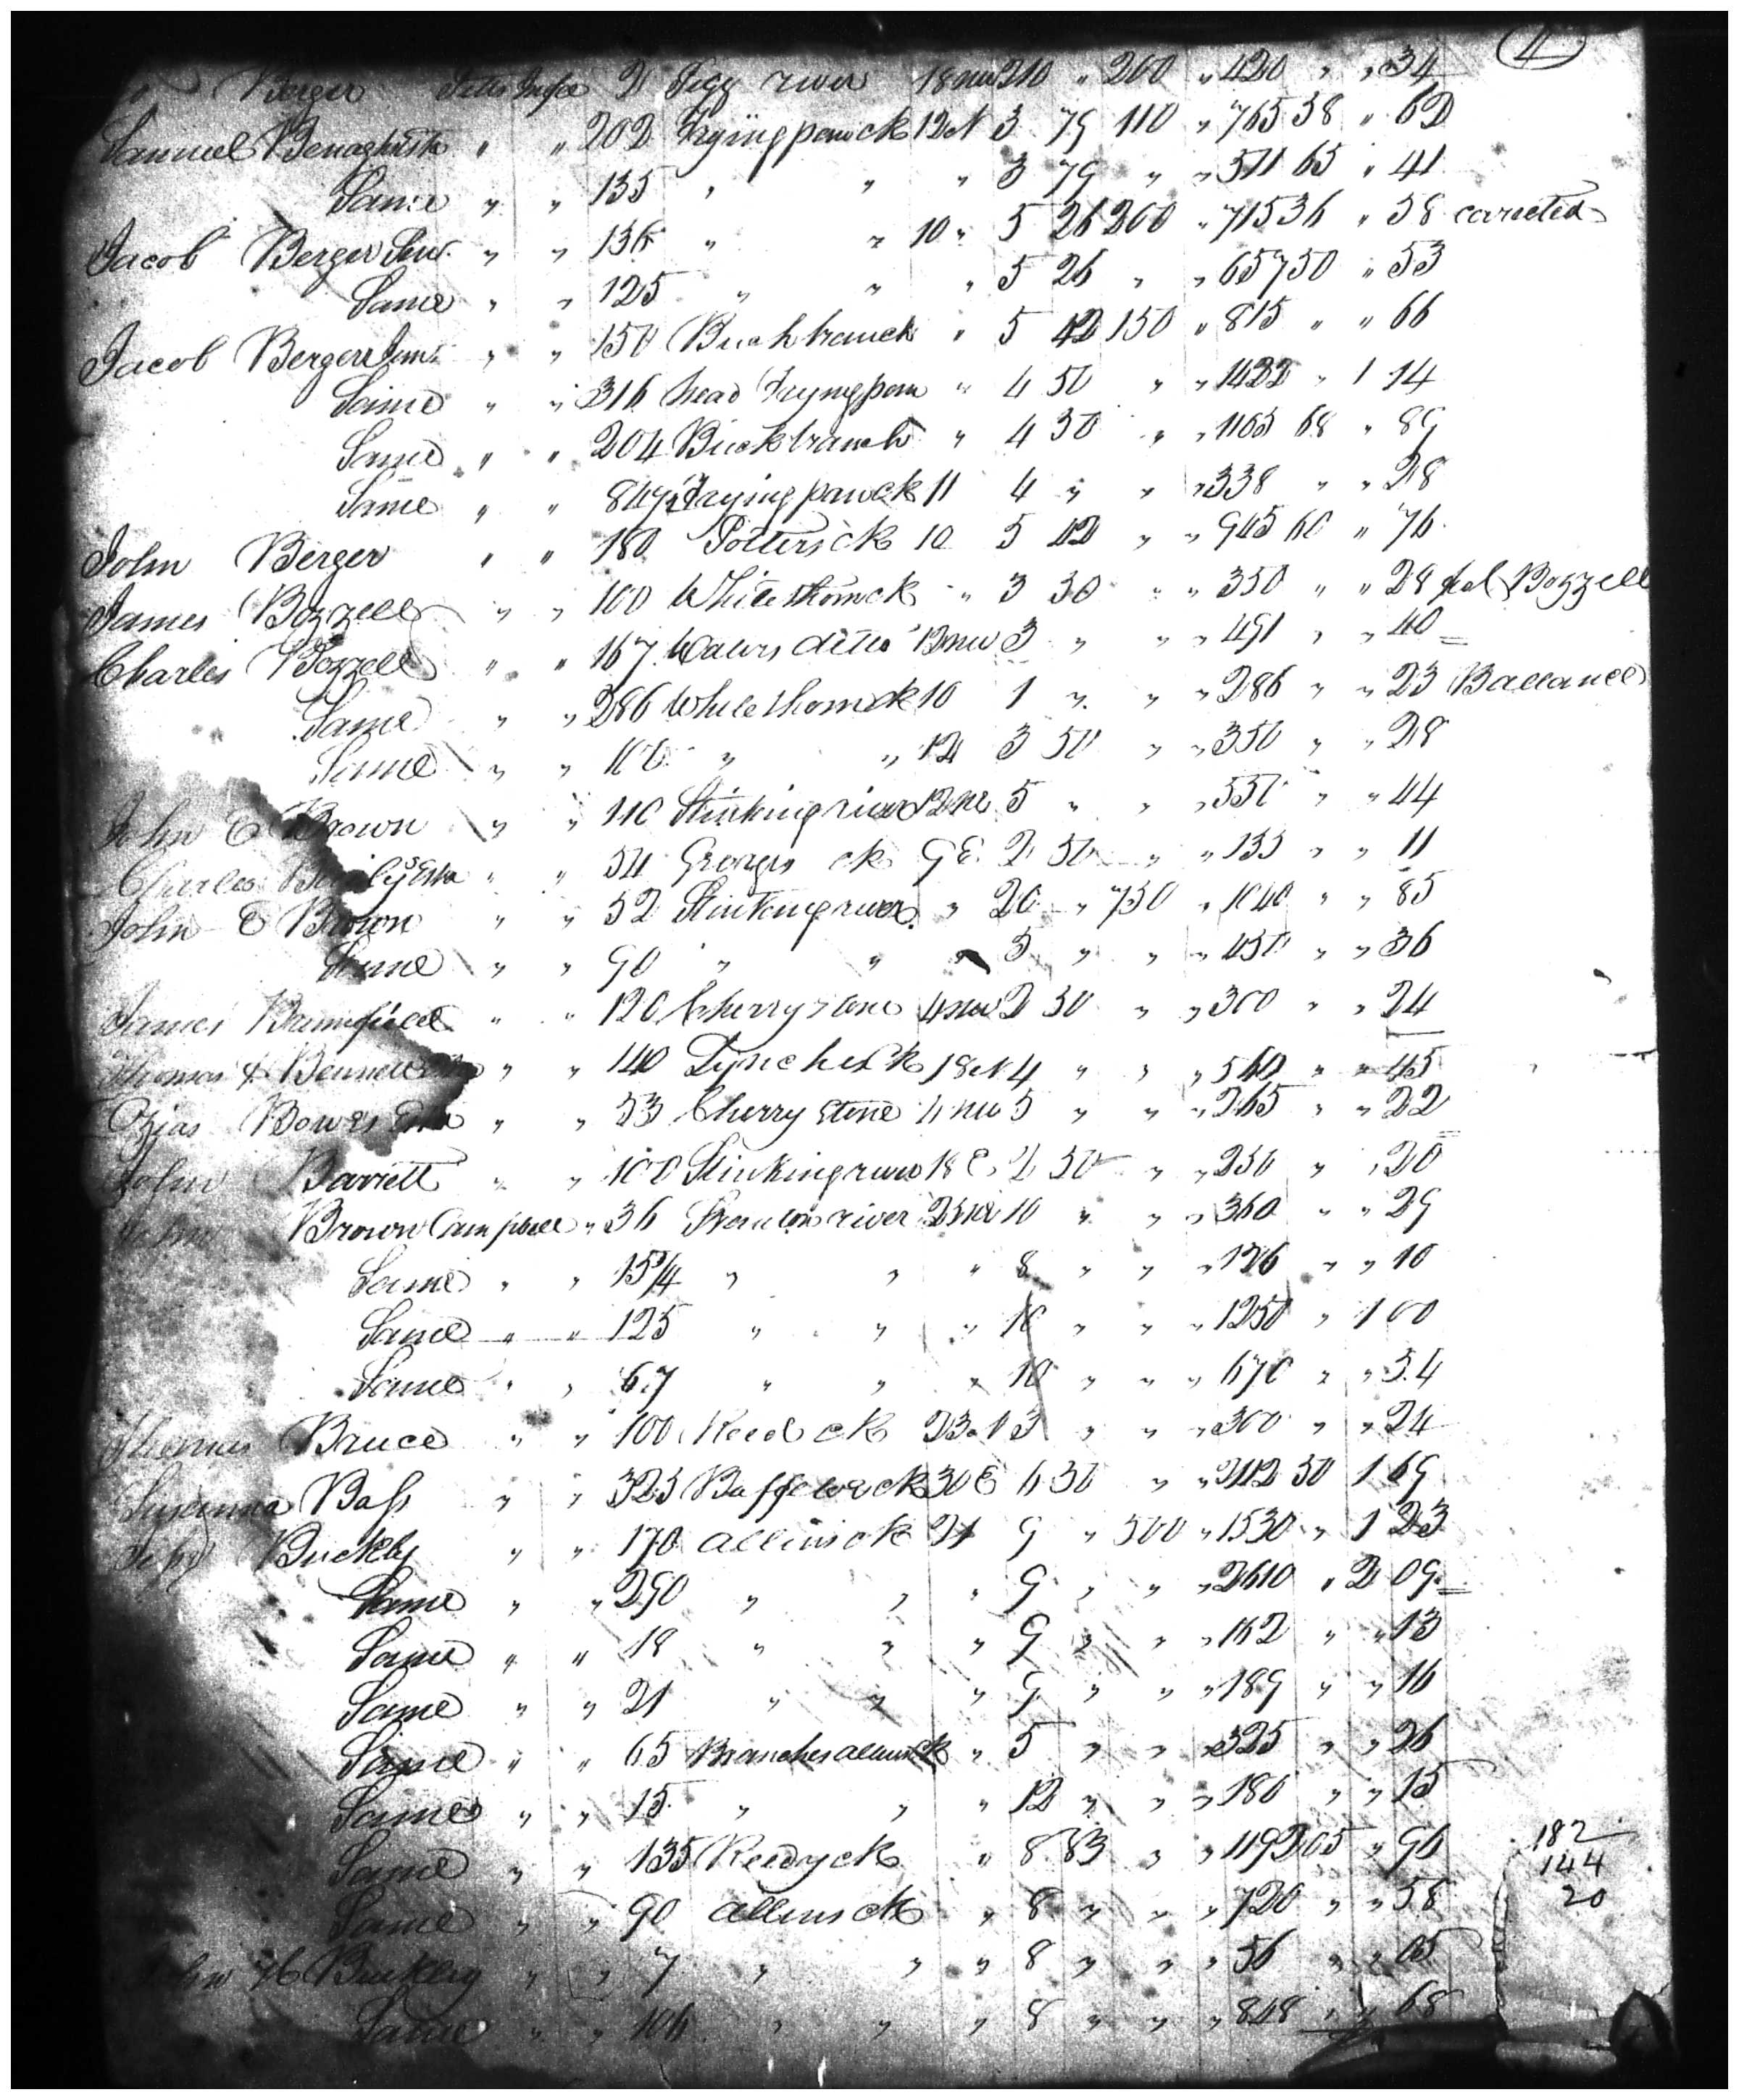 4
Berger 2 Pigg river 18 NW 210 " 200 " 420 " " 34
Samuel " " 202 Frying pan ck 12 N 3 79 110 " 765 58 " 62
Same " " 135 " " " 3 79 " " 511 65 " 41
Jacob Berger Senr. " " 136 " " 10 " 5 26 200 " 715 36 " 58 corrected
Same " " 125 " " " 5 26 " " 657 50 " 53
Jacob Berger Junr " " 150 Buck branch " 5 42 150 " 815 " " 66
Same " " 316 head Fryingpan " 4 50 " " 1422 " 1 14
Same " " 204 Buck branch " 4 50 " " 1163 68 " 89
Same " " 84 1/2 Frying pan ck 11 4 " " " 338 " " 28
John Berger " " 180 Potters ck 10 5 42 " " 945 60 " 76
James Bozzell " " 100 Whitethorn ck " 3 50 " " 350 " " 28 Bozzell
Charles Bozzell " " 167 Waters ditto 13 NW 3 " " " 491 " " 40
Same " " 286 Whitethorn ck 10 1 " " " 286 " " 23 Ballance
Same " " 100 " " 12 3 50 " " 350 " " 28
John E Brown " " 110 Stinking river 12 NE 5 " " " 550 " " 44
Charles " " 54 Georges ck 9 E 2 50 " " 135 " " 11
John E Brown " " 52 Stinking river " 20 " 750 " 1040 " " 85
Same " " 90 " " " 5 " " " 450 " " 36
James " " 120 Cherrystone 4 NW 2 50 " " 300 " " 24
Thomas Bennett " " 140 Lynches ck 18 N 4 " " " 560 " " 45
Ozias Bowes " " 53 Cherry stone 4 NW 5 " " " 265 " " 22
John Barrett " " 100 Stinking river 18 E 2 50 " " 250 " " 20
Brown Campbell " 36 Staunton river 25 NE 10 " " " 360 " " 29
Same " " 15 3/4 " " " 8 " " " 126 " " 10
Same " " 125 " " " 10 " " " 1250 " 1 00
Same " " 67 " " " 10 " " " 670 " " 54
Thomas Bruce " " 100 Reed ck 23 N 3 " " " 300 " " 24
Susanna Bass " " 325 ck 30 E 6 50 " " 2112 50 1 69
Buckley " " 170 Allins ck 21 9 " 500 " 1530 " 1 23
Same " " 290 " " " 9 " " " 2610 " 2 09
Same " " 18 " " " 9 " " " 162 " " 13
Same " " 21 " " " 9 " " " 189 " " 16
Same " " 65 Branches Allins ck " 5 " " " 325 " " 26
Same " " 15 " " " 12 " " " 180 " " 15
Same " " 135 Reedy ck " 8 83 " " 1192 05 " 96
182
144
Same " " 90 Allins ck " 8 " " " 720 " " 58
20
John H Buckley " " 7 " " " 8 " " " 56 " " 05
Same " " 106 " " " 8 " " " 848 " " 68